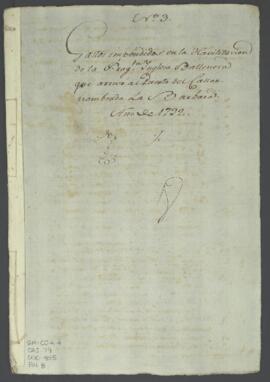 Nº 3.
Gastos impendidos en la Havilitacion
de la Frag.ta Ynglesa Ballenera
que arrivo al Puerto del Callao
nombrada La Barbara.
Año de 1792.
CAJ. 79